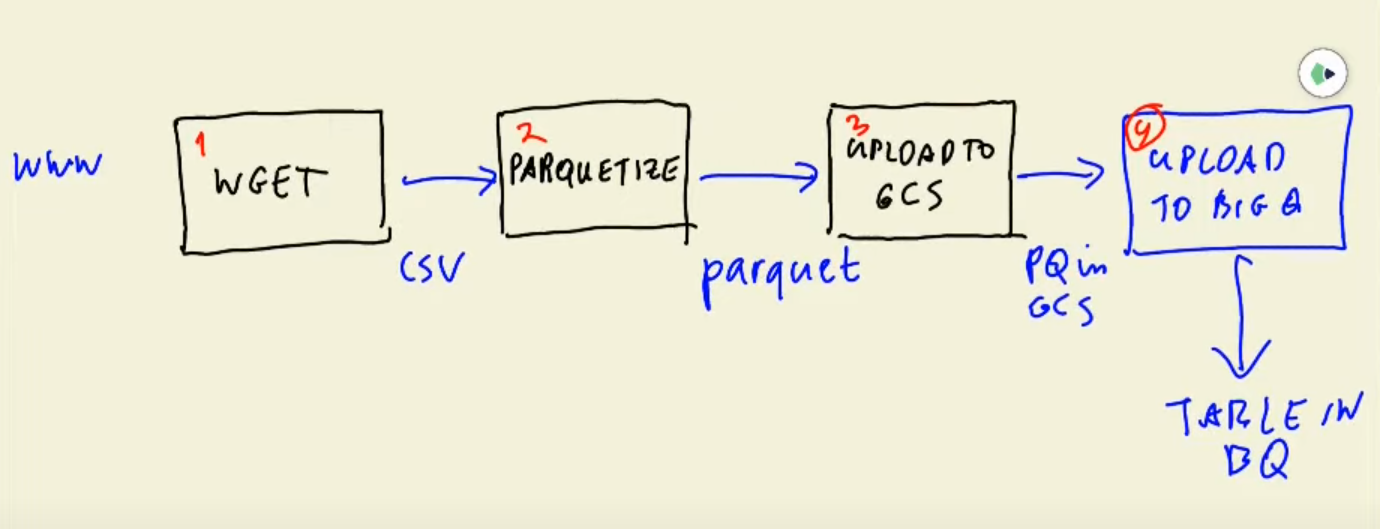 WWW
1
WGET
CSV
2
PARQUETIZE
parquet
3
UPLOAD TO
GCS
PQ in
GCS
4
UPLOAD
TO BIG Q
TABLE IN
BQ